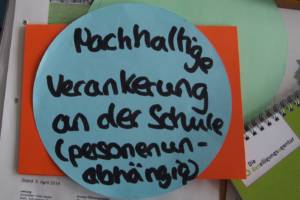 Nachhaltige
Verankerung
an der Schule
(personenun-
abhängig)
Stand: 3. April 2014
Die